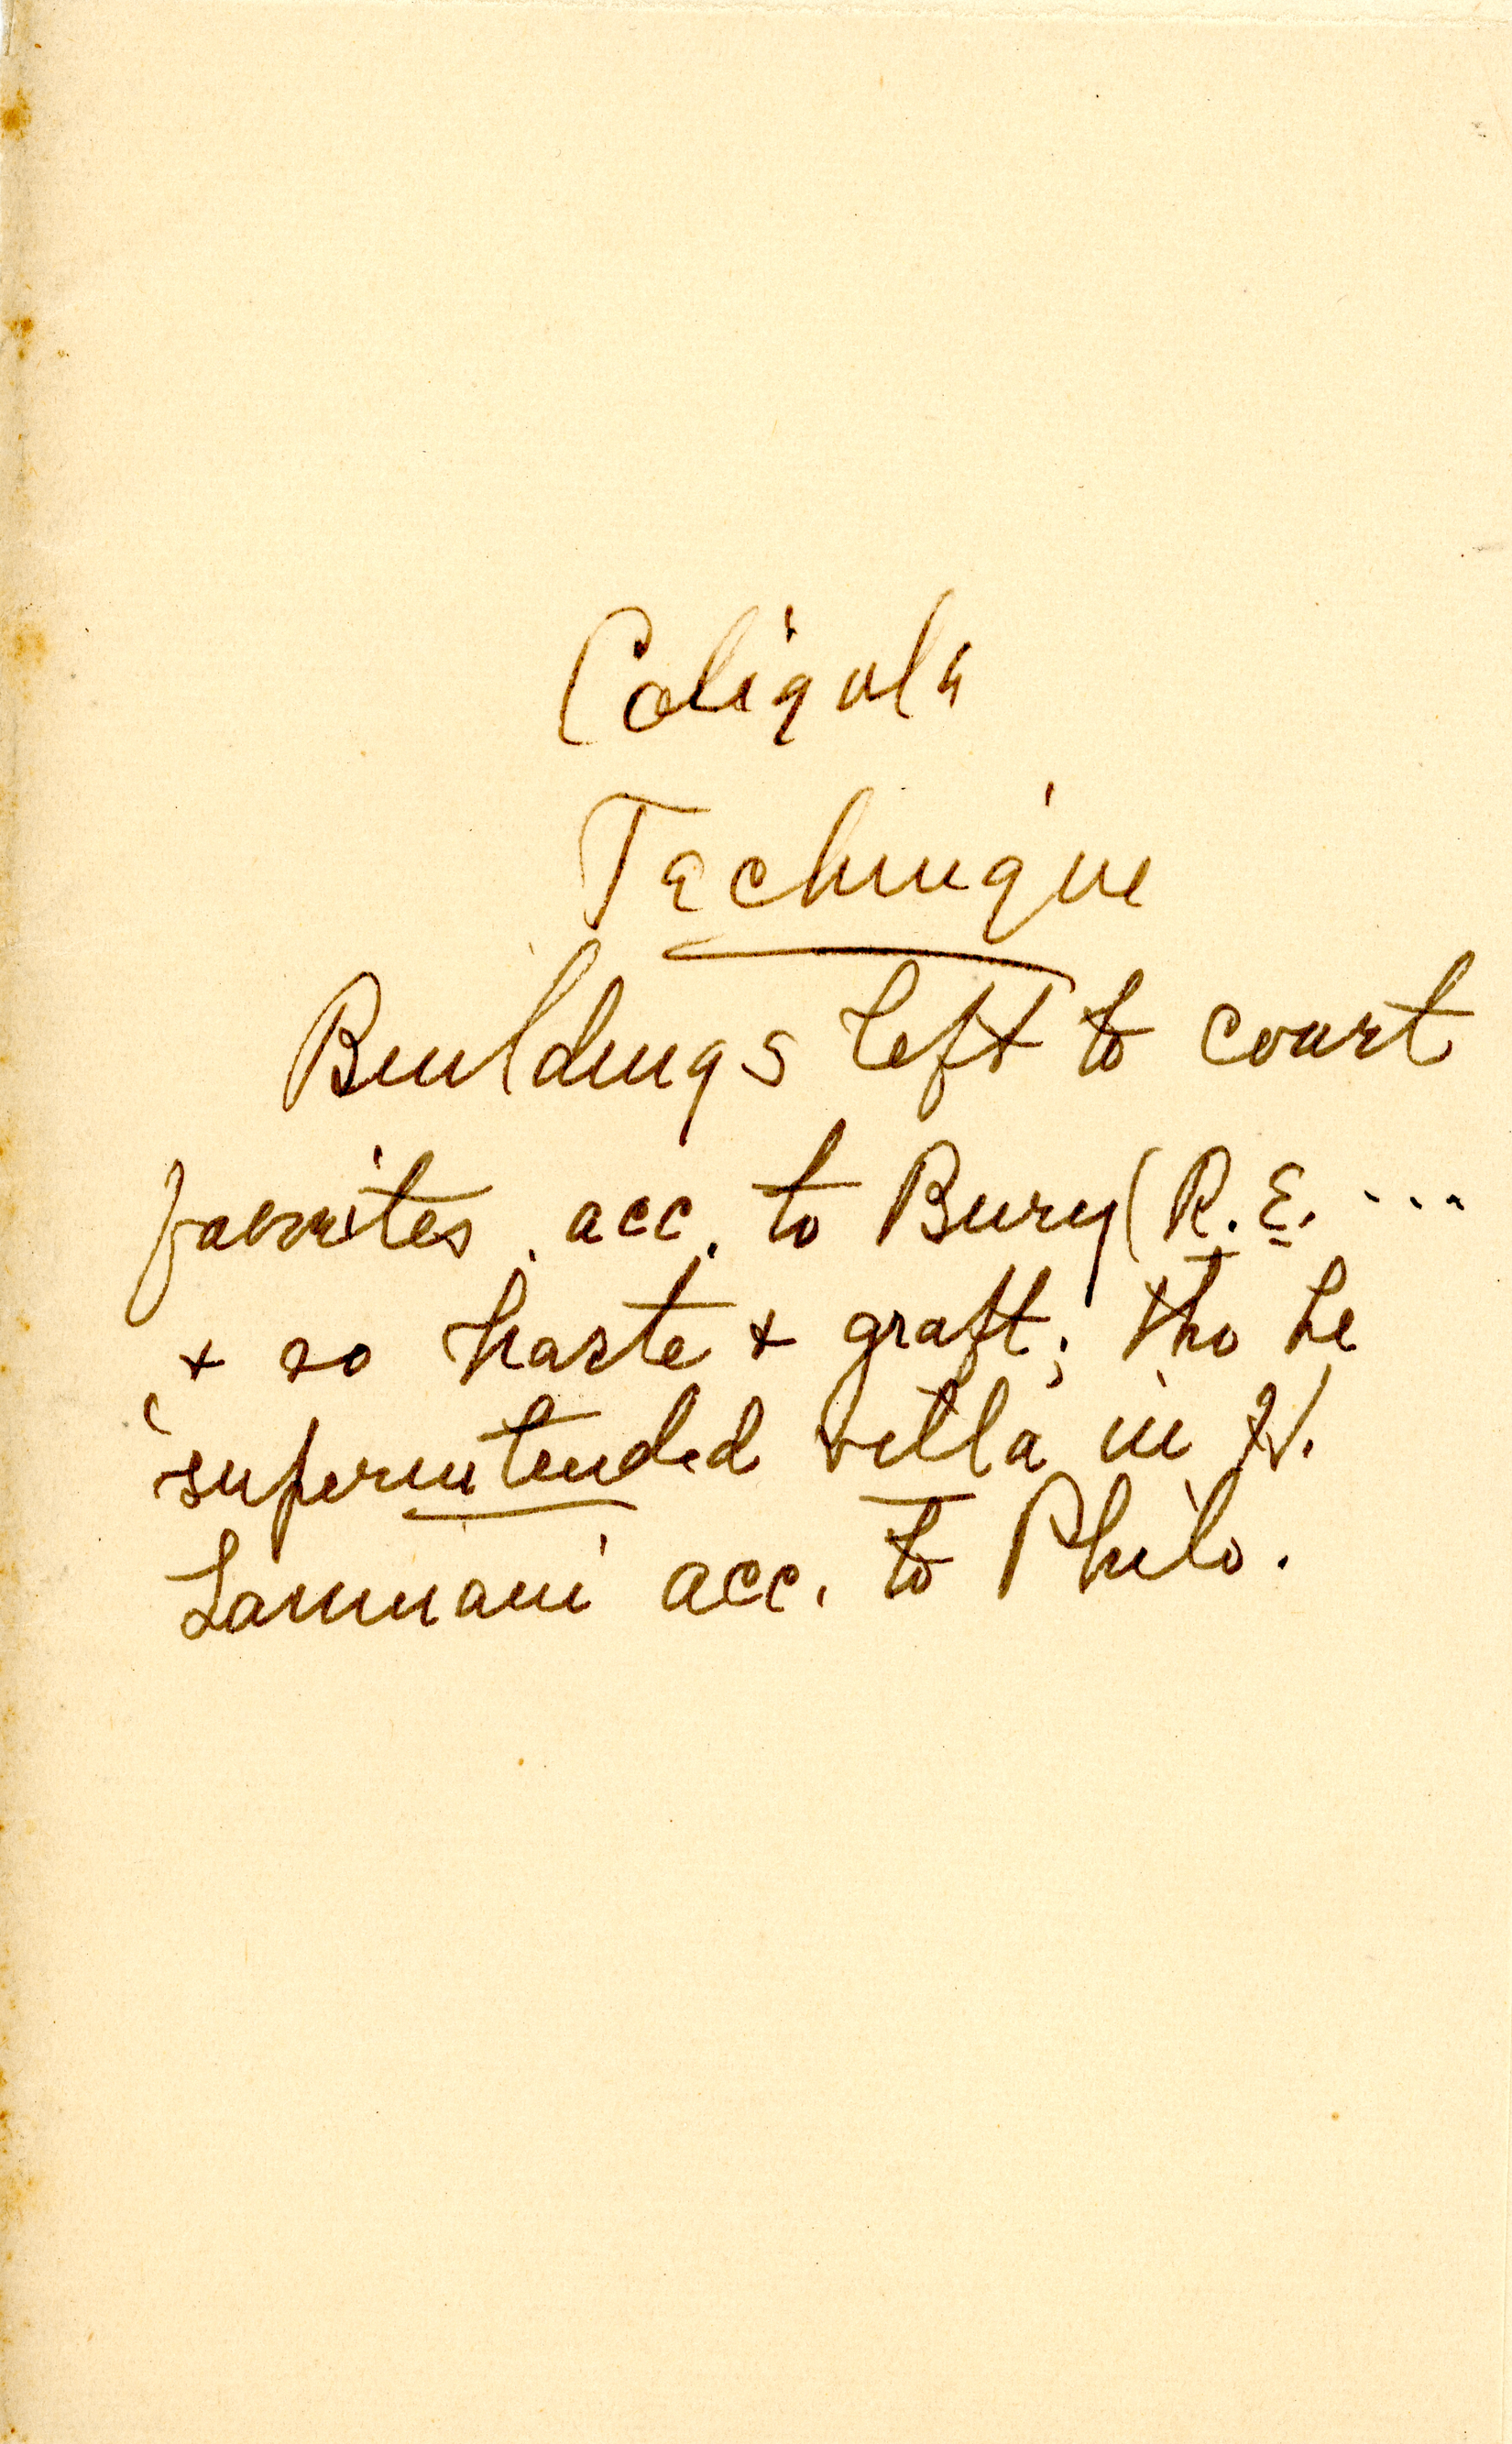 Caligula
Technique
Buildings left to court
favorites acc. to Bury (R.E. ...
+ so haste + graft; tho he
superintended villa in H.
Lamiani acc. to Philo.